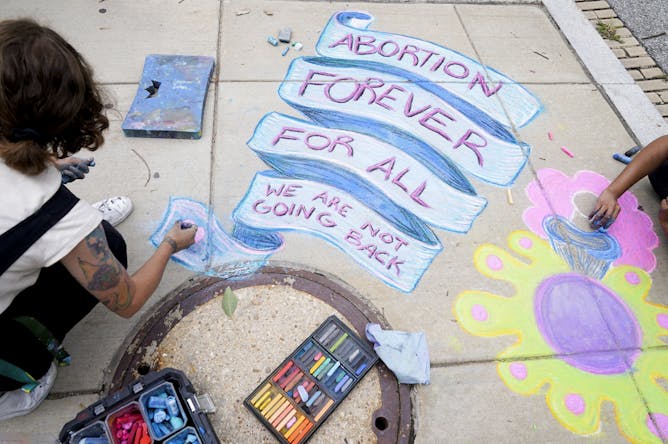 ABORTION
FOREVER
FOR ALL
WE ARE NOT
GOING BACK